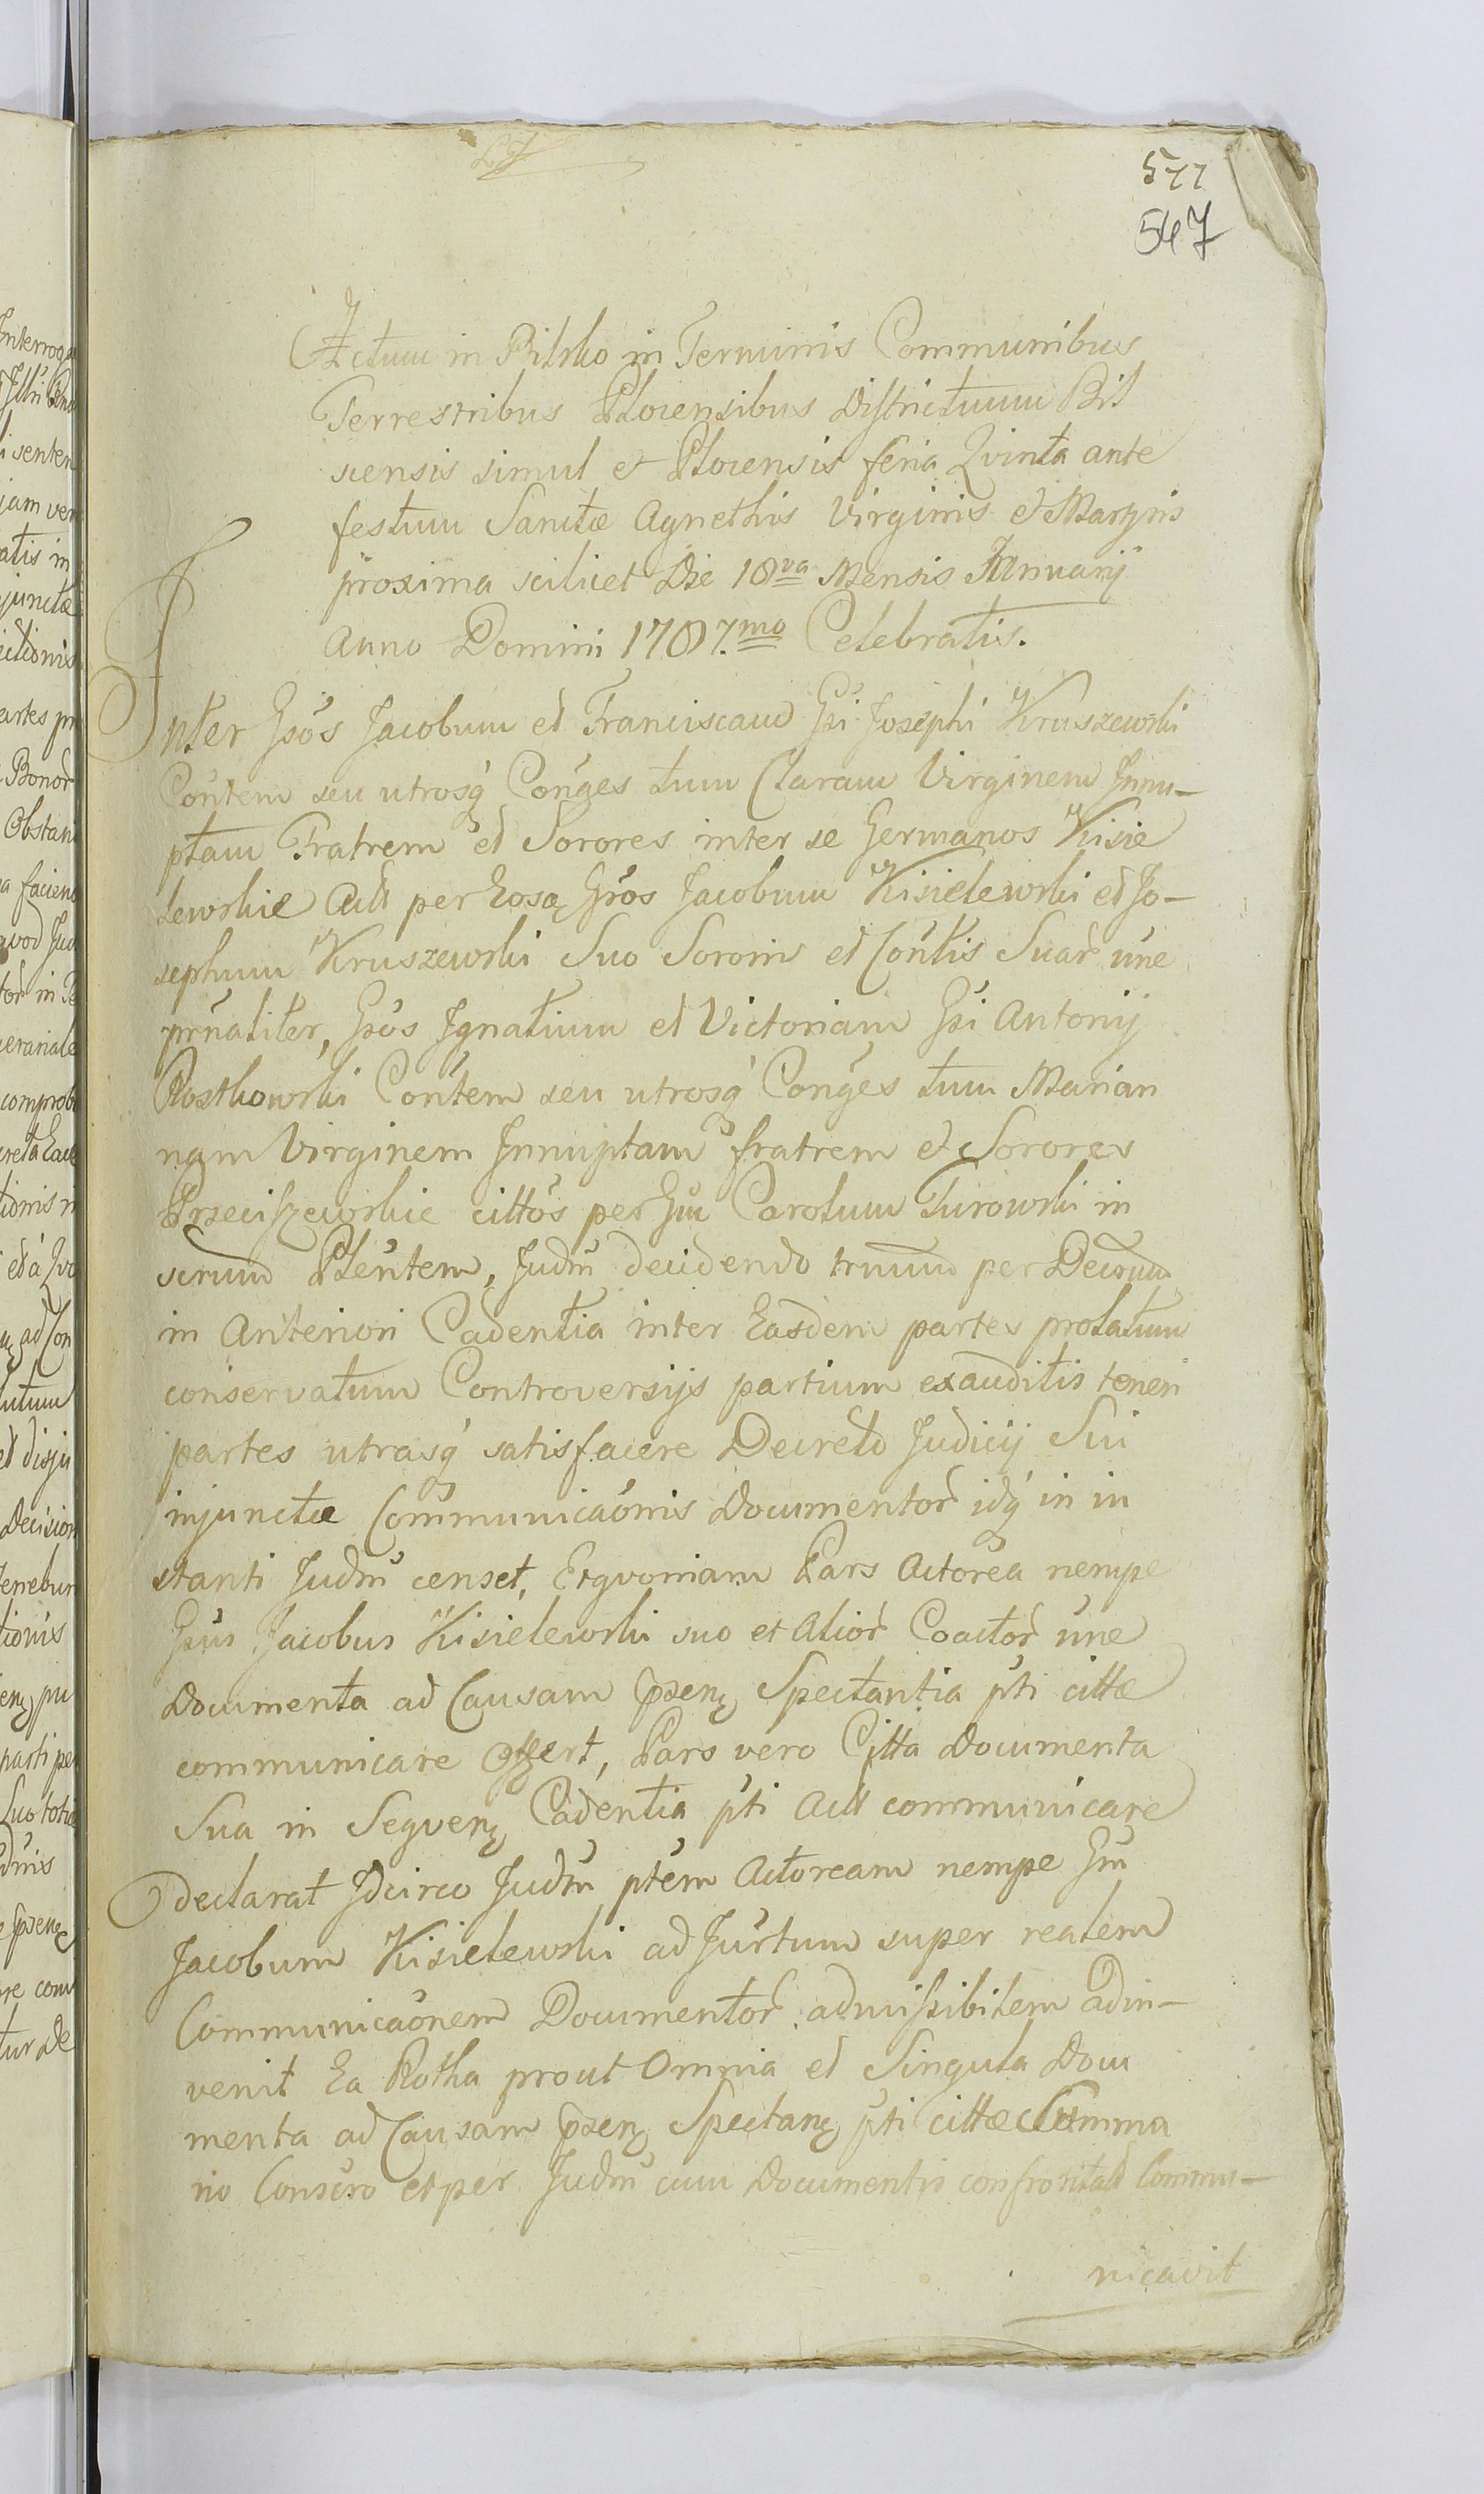 577
547
Actum in Bilsko in Terminis Communibus
Terrestribus Plocensibus Districtuum Bil
scensis simul et Plocensis feria Qvinta ante
festum Sanctæ Agnethis Virginis et Martyris
proxima scilicet Die 18va Mensis Januarij
Anno Domini 1787.mo Celebratis.
Inter Gsos Jacobum et Franciscam Gsi Josephi Kruszewski
Contem seu utrosq Conges tum Claram Virginem Innu-
ptam Fratrem et Sorores inter se Germanos Kisie
lewskie Actt per Eosq Gsos Jacobum Kisielewski et Jo-
sephum Kruszewski Suo Sororis et Contis Suar une
prnaliter, Gsos Ignatium et Victoriam Gsi Antonij
Rostkowski Contem seu utrosq Conges tum Marian
nam Virginem Innuptam fratrem et Sorores
Przeciszewskie cittos per Gm Carolum Turowski in
scrum Plentem, Judm decidendo trnum per Decrum
in Anteriori Cadentia inter Easdem partes prolatum
conservatum Controversijs partium exauditis teneri
partes utrasq satisfacere Decreto Judicij Sui
injunctæ Communicaonis Documentor idq in in
stanti Judm censet, Etqvoniam Pars Actorea nempe
Gsus Jacobus Kisielewski suo et Alior Coactor une
Documenta ad Causam psenz Spectantia pti cittæ
communicare offert, Pars vero Citta Documenta
Sua in Seqvenz Cadentia pti Actt communicare
declarat Idcirco Judm ptem Actoream nempe Gm
Jacobum Kisielewski ad Jurtum super realem
Communicaonem Documentor admissibilem adin-
venit Ea Rotha prout Omnia et Singula Docu
menta ad Causam psenz Spectanz pti cittæ Summa
rio Conscro et per Judm cum Documentis confrontato Commu-
nicavit